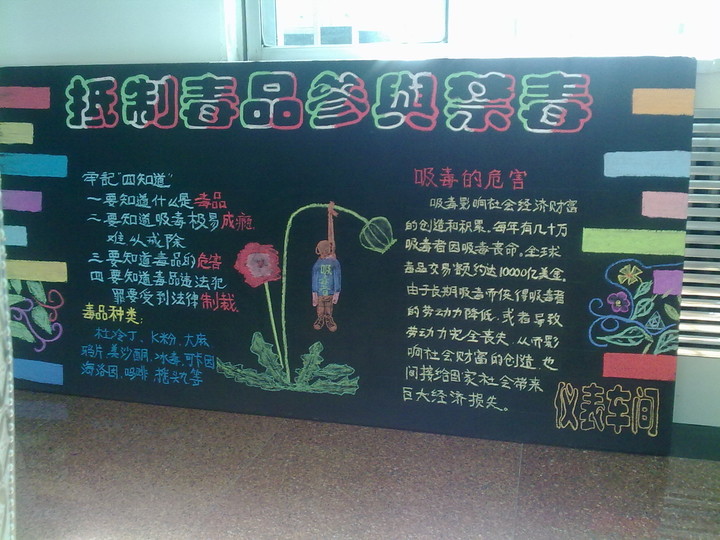 抵制毒品参與禁毒
牢记"四知道"
一要知道什么是毒品
二要知道吸毒极易成瘾
难以戒除
三要知道毒品的危害
四要知道毒品违法犯
罪要受到法律制裁
毒品种类:
杜冷丁、K粉、大麻
鸦片、美沙酮、冰毒、可卡因
海洛因、吗啡、摇头丸等
吸毒者
吸毒的危害
吸毒影响社会经济财富
的创造和积累。每年有几十万
吸毒者因吸毒丧命。全球
毒品交易额约达10000亿美金。
由于长期吸毒而使得吸毒者
的劳动力降低,或者导致
劳动力完全丧失,从而影
响社会财富的创造,也
间接给国家社会带来
巨大经济损失。
仪表车间